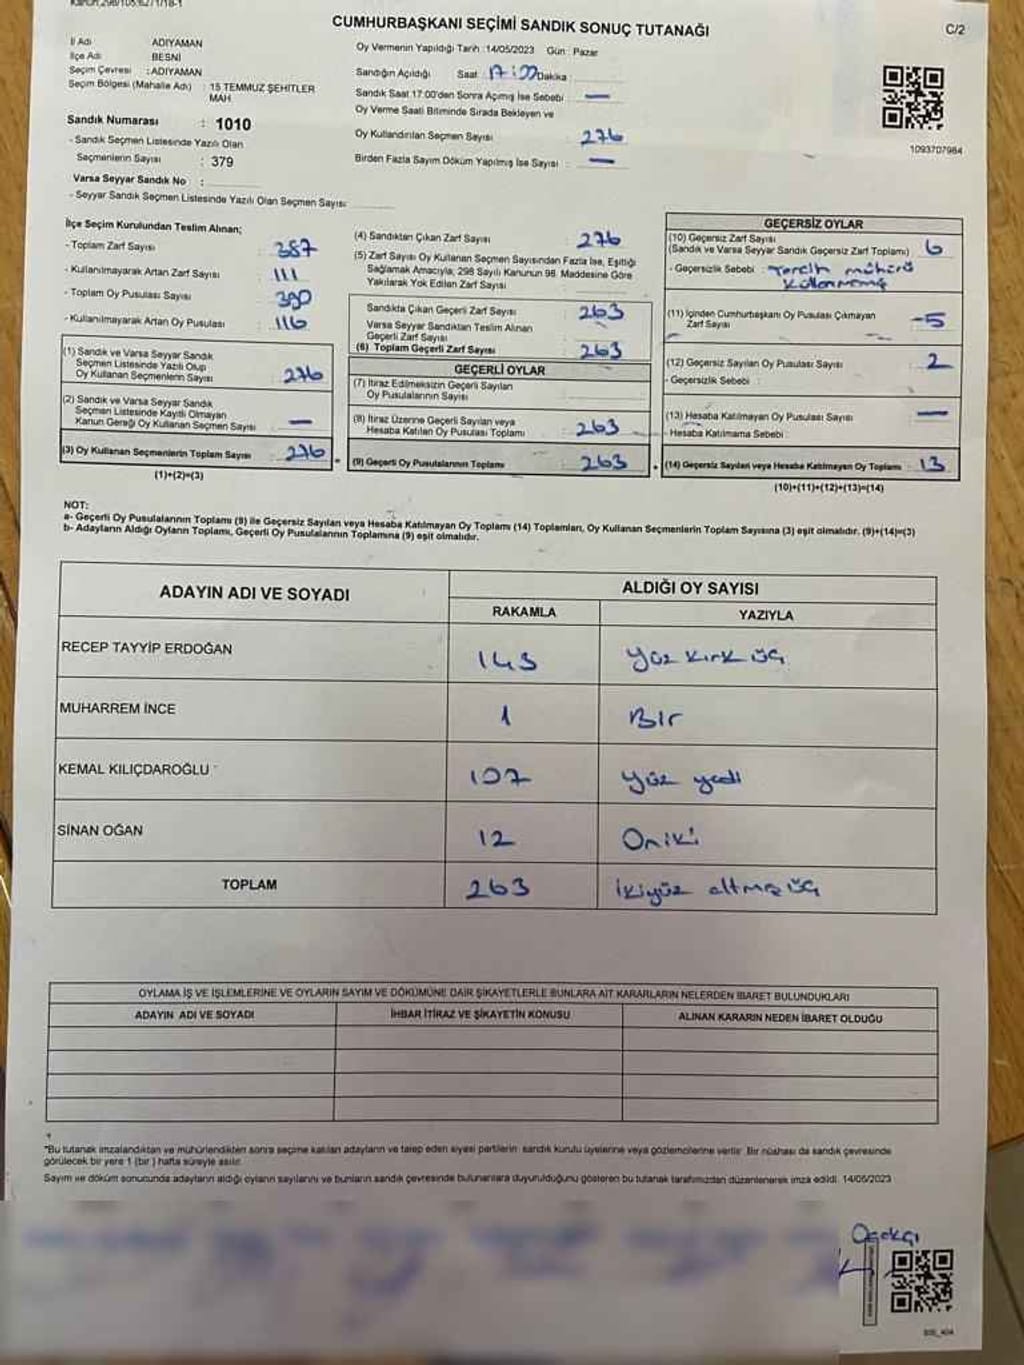 CUMHURBAŞKANI SEÇİMİ SANDIK SONUÇ TUTANAĞI
C/2
İl Adı ADIYAMAN
İlçe Adı BESNİ
Seçim Çevresi : ADIYAMAN
Seçim Bölgesi (Mahalle Adı) : 15 TEMMUZ ŞEHİTLER
MAH
Sandık Numarası : 1010
- Sandık Seçmen Listesinde Yazılı Olan
Seçmenlerin Sayısı : 379
Varsa Seyyar Sandık No :
- Seyyar Sandık Seçmen Listesinde Yazılı Olan Seçmen Sayısı:
Oy Vermenin Yapıldığı Tarih :14/05/2023 Gün : Pazar
Sandığın Açıldığı Saat 17:00 Dakika
Sandık Saat 17:00'den Sonra Açımış İse Sebebi : —
Oy Verme Saati Bitiminde Sırada Bekleyen ve
Oy Kullandırılan Seçmen Sayısı : 276
Birden Fazla Sayım Döküm Yapılmış İse Sayısı : —
1093707984
İlçe Seçim Kurulundan Teslim Alınan;
- Toplam Zarf Sayısı : 387
- Kullanılmayarak Artan Zarf Sayısı : 111
- Toplam Oy Pusulası Sayısı : 390
- Kullanılmayarak Artan Oy Pusulası : 116
(1) Sandık ve Varsa Seyyar Sandık
Seçmen Listesinde Yazılı Olup
Oy Kullanan Seçmenlerin Sayısı : 276
(2) Sandık ve Varsa Seyyar Sandık
Seçmen Listesinde Kayıtlı Olmayan
Kanun Gereği Oy Kullanan Seçmen Sayısı : —
(3) Oy Kullanan Seçmenlerin Toplam Sayısı : 276
(1)+(2)=(3)
(4) Sandıktan Çıkan Zarf Sayısı : 276
(5) Zarf Sayısı Oy Kullanan Seçmen Sayısından Fazla İse, Eşitliği
Sağlamak Amacıyla; 298 Sayılı Kanunun 98. Maddesine Göre
Yakılarak Yok Edilen Zarf Sayısı
Sandıkta Çıkan Geçerli Zarf Sayısı : 263
Varsa Seyyar Sandıktan Teslim Alınan
Geçerli Zarf Sayısı :
(6) Toplam Geçerli Zarf Sayısı : 263
GEÇERLİ OYLAR
(7) İtiraz Edilmeksizin Geçerli Sayılan
Oy Pusulalarının Sayısı :
(8) İtiraz Üzerine Geçerli Sayılan veya
Hesaba Katılan Oy Pusulası Toplamı : 263
(9) Geçerli Oy Pusulalarının Toplamı : 263
GEÇERSİZ OYLAR
(10) Geçersiz Zarf Sayısı
(Sandık ve Varsa Seyyar Sandık Geçersiz Zarf Toplamı) : 6
- Geçersizlik Sebebi : Tercih mührü
kullanmamış
(11) İçinden Cumhurbaşkanı Oy Pusulası Çıkmayan
Zarf Sayısı : 5
(12) Geçersiz Sayılan Oy Pusulası Sayısı : 2
- Geçersizlik Sebebi :
(13) Hesaba Katılmayan Oy Pusulası Sayısı : —
- Hesaba Katılmama Sebebi :
(14) Geçersiz Sayılan veya Hesaba Katılmayan Oy Toplamı : 13
(10)+(11)+(12)+(13)=(14)
NOT:
a- Geçerli Oy Pusulalarının Toplamı (9) ile Geçersiz Sayılan veya Hesaba Katılmayan Oy Toplamı (14) Toplamları, Oy Kullanan Seçmenlerin Toplam Sayısına (3) eşit olmalıdır. (9)+(14)=(3)
b- Adayların Aldığı Oyların Toplamı, Geçerli Oy Pusulalarının Toplamına (9) eşit olmalıdır.
ADAYIN ADI VE SOYADI ALDIĞI OY SAYISI
RAKAMLA YAZIYLA
RECEP TAYYİP ERDOĞAN 143 Yüz kırk üç
MUHARREM İNCE 1 Bir
KEMAL KILIÇDAROĞLU 107 yüz yedi
SİNAN OĞAN 12 Oniki
TOPLAM 263 İkiyüz altmış üç
OYLAMA İŞ VE İŞLEMLERİNE VE OYLARIN SAYIM VE DÖKÜMÜNE DAİR ŞİKAYETLERLE BUNLARA AİT KARARLARIN NELERDEN İBARET BULUNDUKLARI
ADAYIN ADI VE SOYADI İHBAR İTİRAZ VE ŞİKAYETİN KONUSU ALINAN KARARIN NEDEN İBARET OLDUĞU
*Bu tutanak imzalandıktan ve mühürlendikten sonra seçime katılan adayların ve talep eden siyasi partilerin sandık kurulu üyelerine veya gözlemcilerine verilir. Bir nüshası da sandık çevresinde
görülecek bir yere 1 (bir) hafta süreyle asılır.
Sayım ve döküm sonucunda adayların aldığı oyların sayılarını ve bunların sandık çevresinde bulunanlara duyurulduğunu gösteren bu tutanak tarafımızdan düzenlenerek imza edildi. 14/05/2023